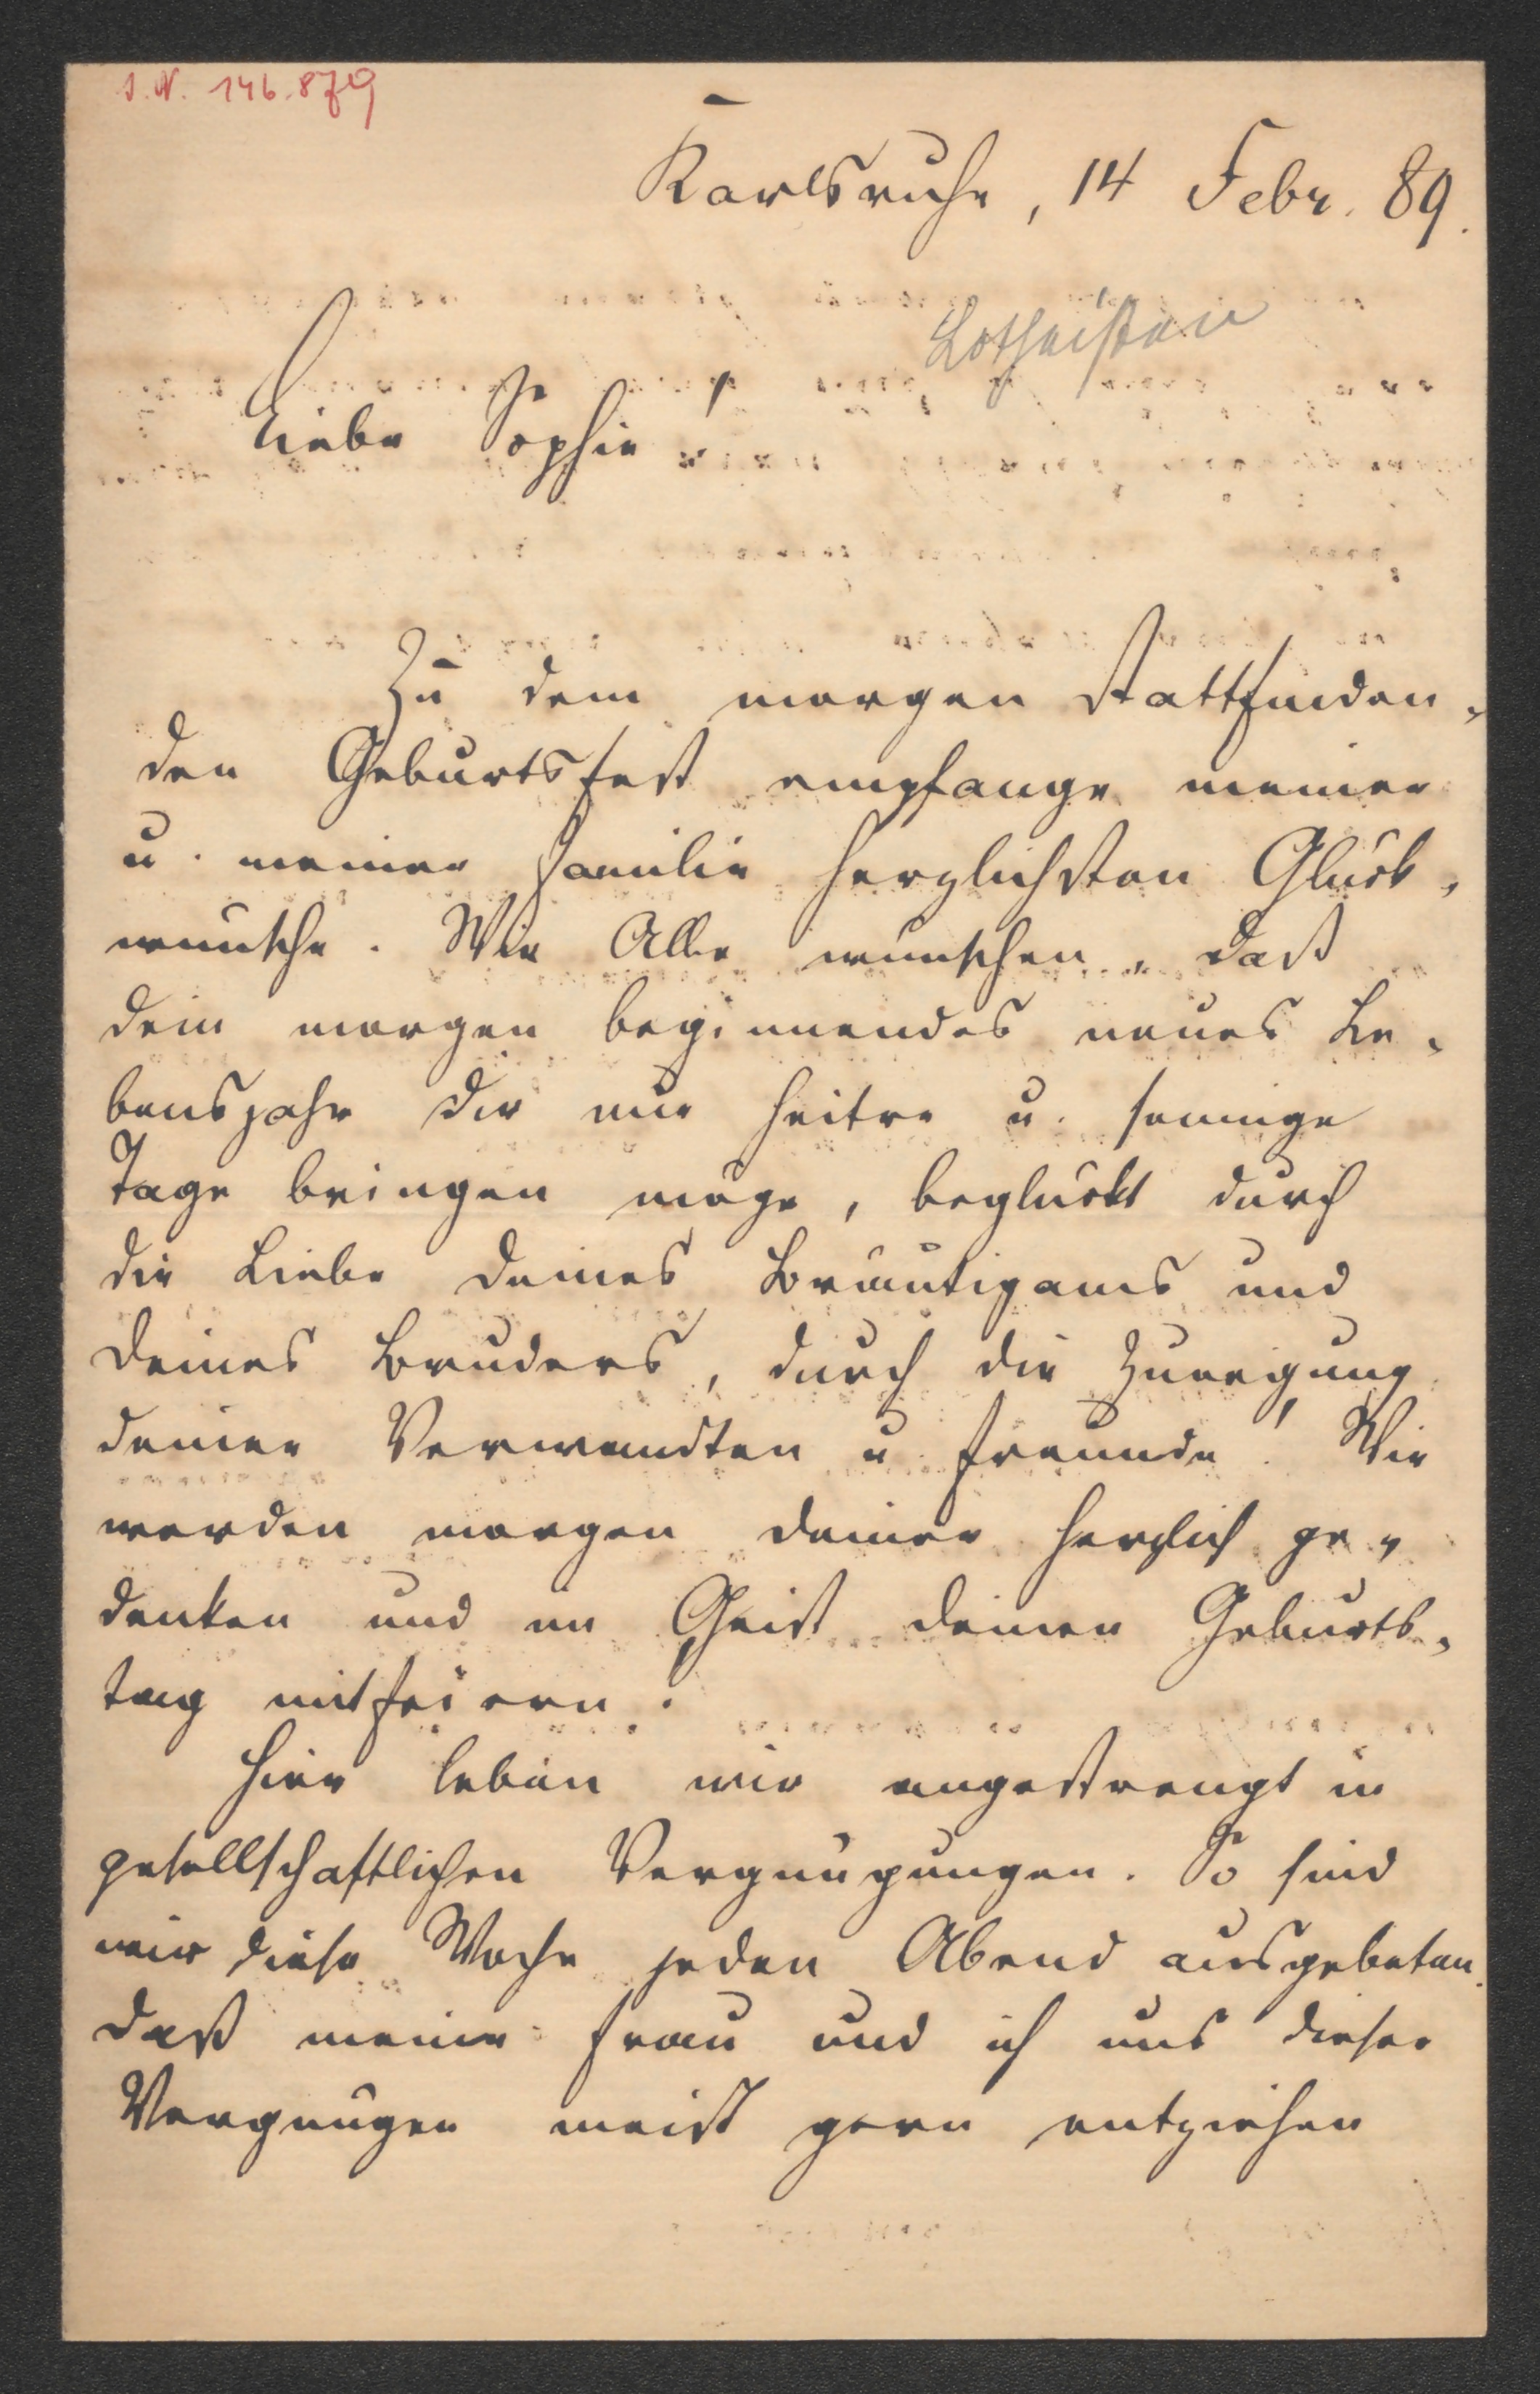 I.N. 146.879
Karlsruhe, 14 Febr. 89.
Lotheißen
Liebe Sophie!
Zu dem morgen stattfinden-
den Geburtsfest empfange meine
u. meiner Familie herzlichsten Glück-
wünsche. Wir Alle wünschen, daß
dein morgen beginnendes neues Le-
bensjahr dir nur heitre u. sonnige
Tage bringen möge, beglückt durch
die Liebe deines Bräutigams und
deines Bruders, durch die Zuneigung
deiner Verwandten u. Freunde! Wir
werden morgen deiner herzlich ge-
denken und im Geist deinen Geburts-
tag mitfeiern.
Hier leben wir angestrengt in
gesellschaftlichen Vergnügungen. So sind
wir diese Woche jeden Abend ausgebeten.
Daß meine Frau und ich uns dieser
Vergnügen meist gern entziehen